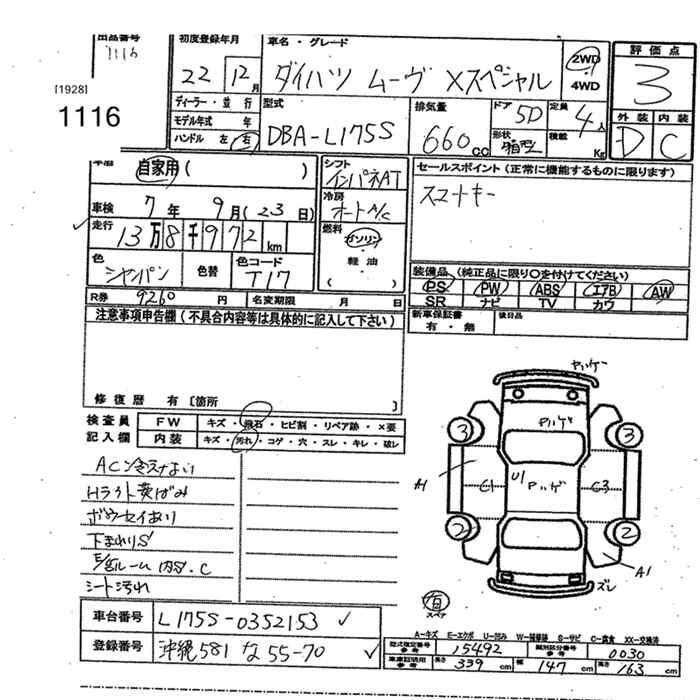 出品番号 1116
[1928]
1116
初度登録年月 22 12月
車名・グレード ダイハツ ムーヴ Xスペシャル
2WD
4WD
評価点 3
外装 D 内装 C
ディーラー・並行
モデル年式 年
ハンドル 左 右
型式 DBA-L175S
排気量 660cc
ドア 5D
定員 4人
形状 箱型
積載 Kg
車歴 自家用 ( )
車検 7年 9月 (23日)
走行 13万8千972km
色 シャンパン 色替 色コード T17
シフト インパネAT
冷房 オートA/C
燃料 ガソリン・軽油・( )
セールスポイント(正常に機能するものに限ります)
スマートキー
装備品(純正品に限り○を付けてください)
PS PW ABS エアB AW
SR ナビ TV カワ
新車保証書 有・無 後日品
R券 9260円 名変期限 月 日
注意事項申告欄(不具合内容等は具体的に記入して下さい)
修復歴 有〔箇所
検査員記入欄
FW キズ・飛石・ヒビ割・リペア跡・×要
内装 キズ・汚れ・コゲ・穴・スレ・キレ・破レ
ACン冷えない
Hライト黄ばみ
ボウセイあり
下まわりS
シート汚れ
ヤハゲー
Pハゲ
3 3
A1 C1 U1 Pハゲ C3
2 2
A1
ズレ
有
スペア
車台番号 L175S-0352153
登録番号 沖縄581 な55-70
A-キズ E-エクボ U-凹み W-補修跡 S-サビ C-腐食 XX-交換済
型式指定番号 参考 15492 類別区分番号 参考 0030
車庫証明用 参考 長さ 339cm 幅 147cm 高さ 163cm